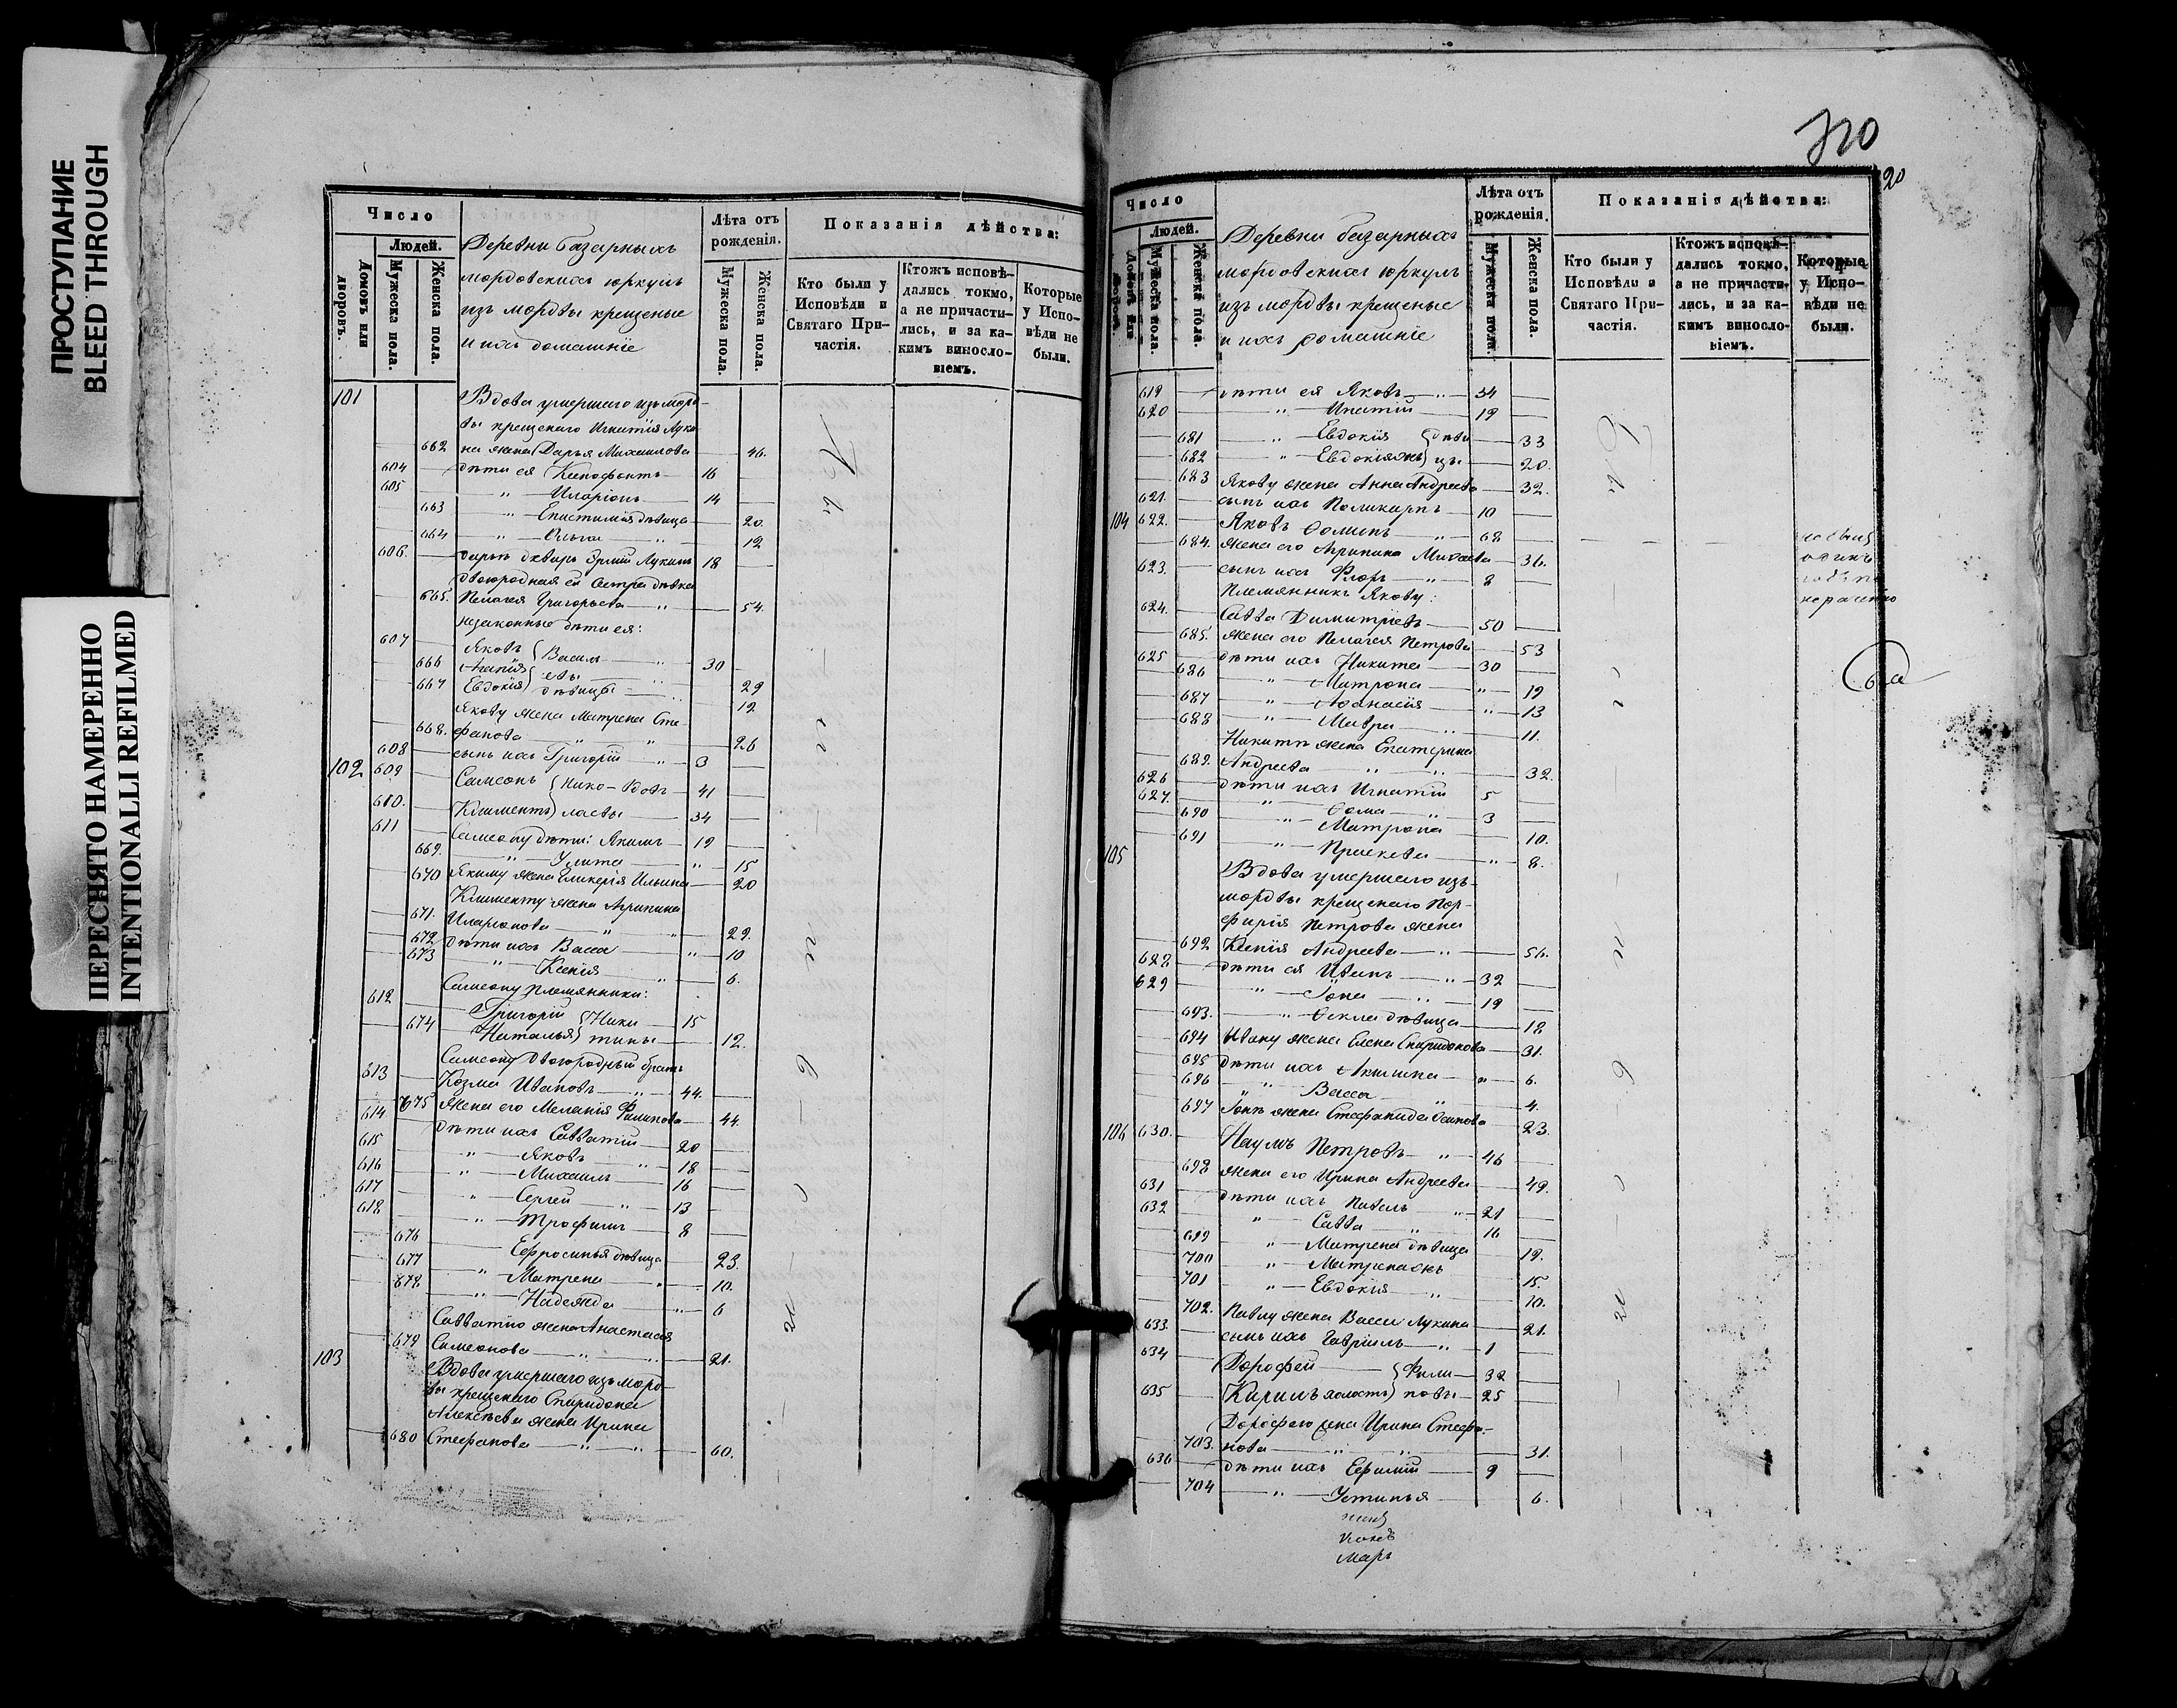 ПРОСТУПАНИЕ
BLEED THROUGH
ПЕРЕСНЯТО НАМЕРЕННО
INTENTIONALLI REFILMED
Число
Людей.
Домовъ или дворовъ.
Мужеска пола.
Женска пола.
Деревни базарныхъ
мордовскихъ юркуль
изъ мордвы крещеные
и ихъ домашніе
Лѣта отъ рожденія.
Мужеска пола.
Женска пола.
Показанія дѣйства:
Кто были у Исповѣди и Святаго Причастія.
Ктожъ исповѣдались токмо, а не причастились, и за какимъ винословіемъ.
Которые у Исповѣди не были.
101 Вдова умершаго изъ морд-
вы крещенаго Игнатія Луки-
662 на жена Дарья Михаилова 46.
604 дѣти ея Ксенофонтъ 16
605 " Иларіонъ 14
663 " Епистимія дѣвица 20.
664 " Ольга " 12
606. Дарьѣ деверь Лукинъ 18
двоюродная ей сестра дѣвка
665. Пелагея Григорьева " 54.
незаконные дѣти ея:
607 Яковъ Василь " 30
666 Агапія евы " 29
667 Евдокія дѣвицы 12
Якову жена Матрена Сте-
668. фанова " " 26
608 сынъ ихъ Григорій " 3
102 609 Самсонъ Нико- 41
610. Климентъ лаевы 34
611 Самсону дѣти: Якимъ 19
669. " Улита " 15
670 Якиму жена Гликерія Ильина 20
Клименту жена Агрипина
671. Иларіонова " " 29.
672 дѣти ихъ Васса " 10
673 " Ксенія " 6.
Самсону племянники:
612 Григорій Ники- 15
674 Наталья тины 12.
Самсону двоюродный братъ
613 Козма Ивановъ " 44.
675 жена его Меланія Филипова 44.
614 дѣти ихъ Савватій 20
615 " Яковъ " 18
616 " Михаилъ 16
617 " Сергей " 13
618 " Трофимъ 8
676 Ефросинья дѣвица 23.
677 " Матрена " 10.
678 " Надежда " 6
Савватію жена Анастасія
679 Самсонова " " 21.
103 Вдова умершаго изъ морд-
вы крещенаго Спиридона
Алексѣева жена Ирина
680 Стефанова " " 60.
320
20
Число
Людей.
Мужеска пола.
Женска пола.
Деревни базарныхъ
мордовскихъ юркуль
изъ мордвы крещеные
и ихъ домашніе
Лѣта отъ рожденія.
Мужеска пола.
Женска пола.
Показанія дѣйства:
Кто были у Исповѣди и Святаго Причастія.
Ктожъ исповѣдались токмо, а не причастились, и за какимъ винословіемъ.
Которые у Исповѣди не были.
619 дѣти ея Яковъ " 34
620 " Игнатій 19
681 " Евдокія дѣви 33
682 " Евдокія цы 20.
683 Якову жена Анна Андреева 32.
621. сынъ ихъ Поликарпъ 10
104 622. Яковъ Ѳоминъ " 68
684. жена его Агрипина Михаева 36.
623. сынъ ихъ Флоръ " 8
Племянникъ Якову:
624. Савва Димитріевъ 50
685. жена его Пелагея Петрова 53
625 дѣти ихъ Никита 30
686 " Матрона " 19
687 " Аѳанасія " 13
688 " Мавра " 11.
Никитѣ жена Екатерина
689. Андреева " " 32.
626 дѣти ихъ Игнатій 5
627. " Ѳома " 3
690 " Матрона 10.
691 " Праскева " 8.
105 Вдова умершаго изъ
мордвы крещенаго Пор-
фирія Петрова жена
692 Ксенія Андреева " 56.
628 дѣти ея Иванъ " 32
629 " Іона " 19
693. " Ѳекла дѣвица 18
694 Ивану жена Елена Спиридонова 31.
695 дѣти ихъ Акилина " 6.
696 " Васса " 4.
697 Іонѣ жена Стефанида Осипова 23.
106 630. Наумъ Петровъ " 46
698 жена его Ирина Андреева 49.
631 дѣти ихъ Павелъ " 21
632 " Савва " 16
699 " Матрена дѣвица 19.
700 " Матрена 15.
701 " Евдокія " 10.
702. Павлу жена Васса Лукина 21.
633 сынъ ихъ Гавріилъ " 1
634 Дорофей Фили- 32
635 Кирилъ холостъ повы 25
Дорофею жена Ирина Стефа-
703. нова " " 31.
636 дѣти ихъ Ефимій 9
704 " Устинья 6.